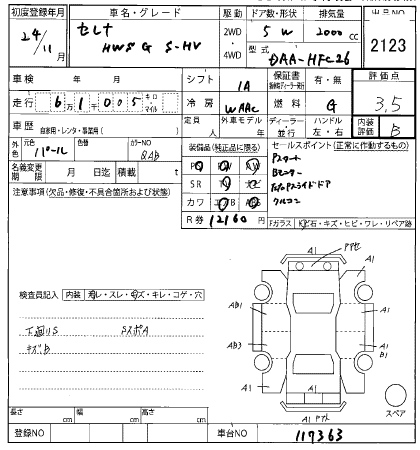 初度登録年月 車名・グレード 駆動 ドア数・形状 排気量 出品NO
24/11月 セレナ 2WD・4WD 5 W 2000 cc 2123
HWS G S-HV 型式 DAA-HFC26
車検 年 月 シフト IA 保証書 有・無 評価点
走行 61005 キロ・マイル 冷房 WAAC 燃料 G 3,5
車歴 自家用・レンタ・事業用( ) 定員 人 外車モデル 年 ディーラー・並行 ハンドル 左・右 内装評価 B
外色 元色 パール 色替 カラーNO QAB
装備品(純正品に限る) セールスポイント(正常に作動するもの)
名義変更期限 月 日迄 積載 t
SR
カワ
R券 12160
Pスタート
Bモニター
クルコン
注意事項(欠品・修復・不具合箇所および状態)
Fガラス 石・キズ・ヒビ・ワレ・リペア跡
検査員記入 内装 スレ・キズ・キレ・コゲ・穴
下廻りS SスポA
キズB
A1
A1
AB1
A1
AB3
A1
B1
A1
A1
A1
スペア
長さ cm 幅 cm 高さ cm
登録NO 車台NO 117363